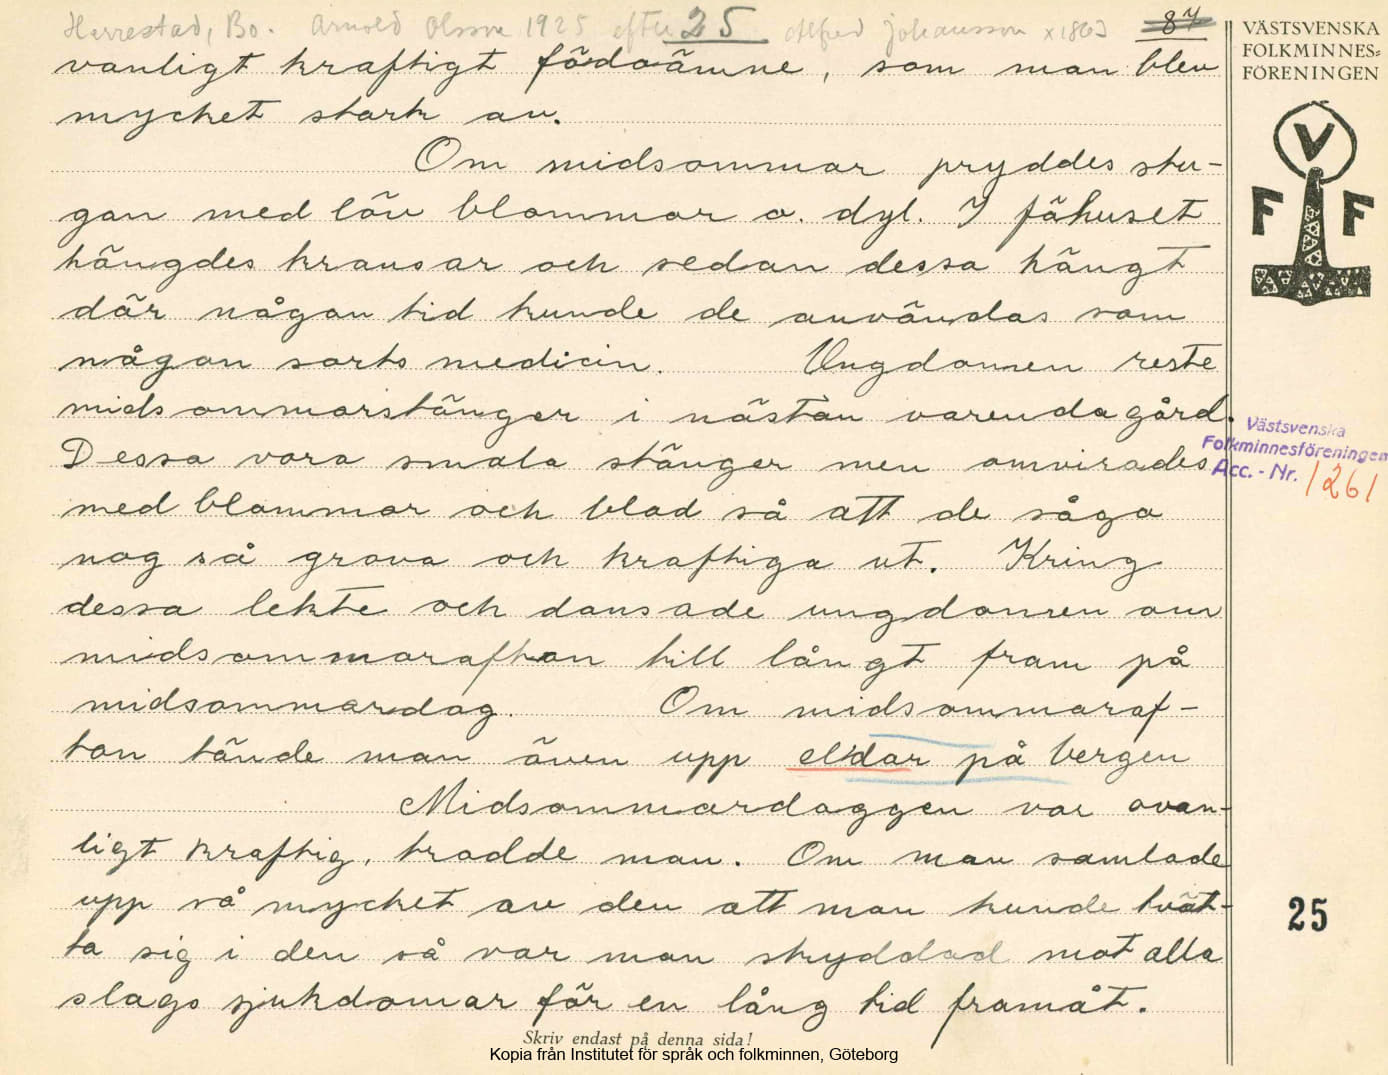 Herrestad, Bo. Arnold Olsson 1925 efter 25 Alfred Johansson x 1863 87
vanligt kraftigt födoämne, som man blev
mycket stark av.
Om midsommar pryddes stu-
gan med löv blommor o. dyl. I fähuset
hängdes kransar och sedan dessa hängt
där någon tid kunde de användas som
någon sorts medicin. Ungdomen reste
midsommarstänger i nästan varenda gård.
Dessa voro smala stänger men omvirades
med blommor och blad så att de sågo
nog så grova och kraftiga ut. Kring
dessa lekte och dansade ungdomen om
midsommarafton till långt fram på
midsommardag. Om midsommaraf-
ton tände man även upp eldar på bergen
Midsommardaggen var ovan-
ligt kraftig, trodde man. Om man samlade
upp så mycket av den att man kunde tvät-
ta sig i den så var man skyddad mot alla
slags sjukdomar för en lång tid framåt.
Skriv endast på denna sida!
Kopia från Institutet för språk och folkminnen, Göteborg
VÄSTSVENSKA
FOLKMINNES-
FÖRENINGEN
V
F F
Västsvenska
Folkminnesföreningen
Acc. - Nr. 1261
25